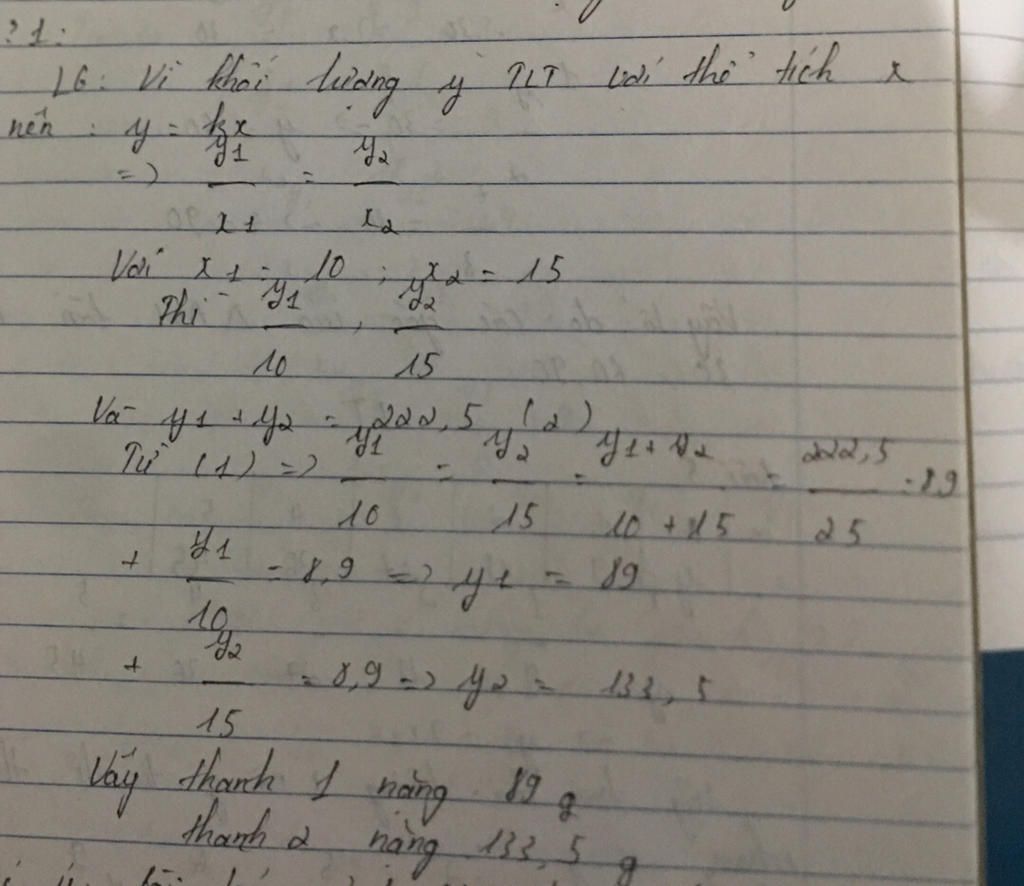 ? 1:
LG: Vì khối lượng y TLT với thể tích x
nên : y = kx
=> y1/x1 = y2/x2
Với x1 = 10 ; x2 = 15
Thì y1/10 , y2/15
Và y1 + y2 = 222,5 (2)
Từ (1) => y1/10 = y2/15 = y1 + y2/10 + 15 = 222,5/25 = 8,9
+ y1/10 = 8,9 => y1 = 89
+ y2/15 = 8,9 => y2 = 133,5
Vậy thanh 1 nặng 89 g
thanh 2 nặng 133,5 g